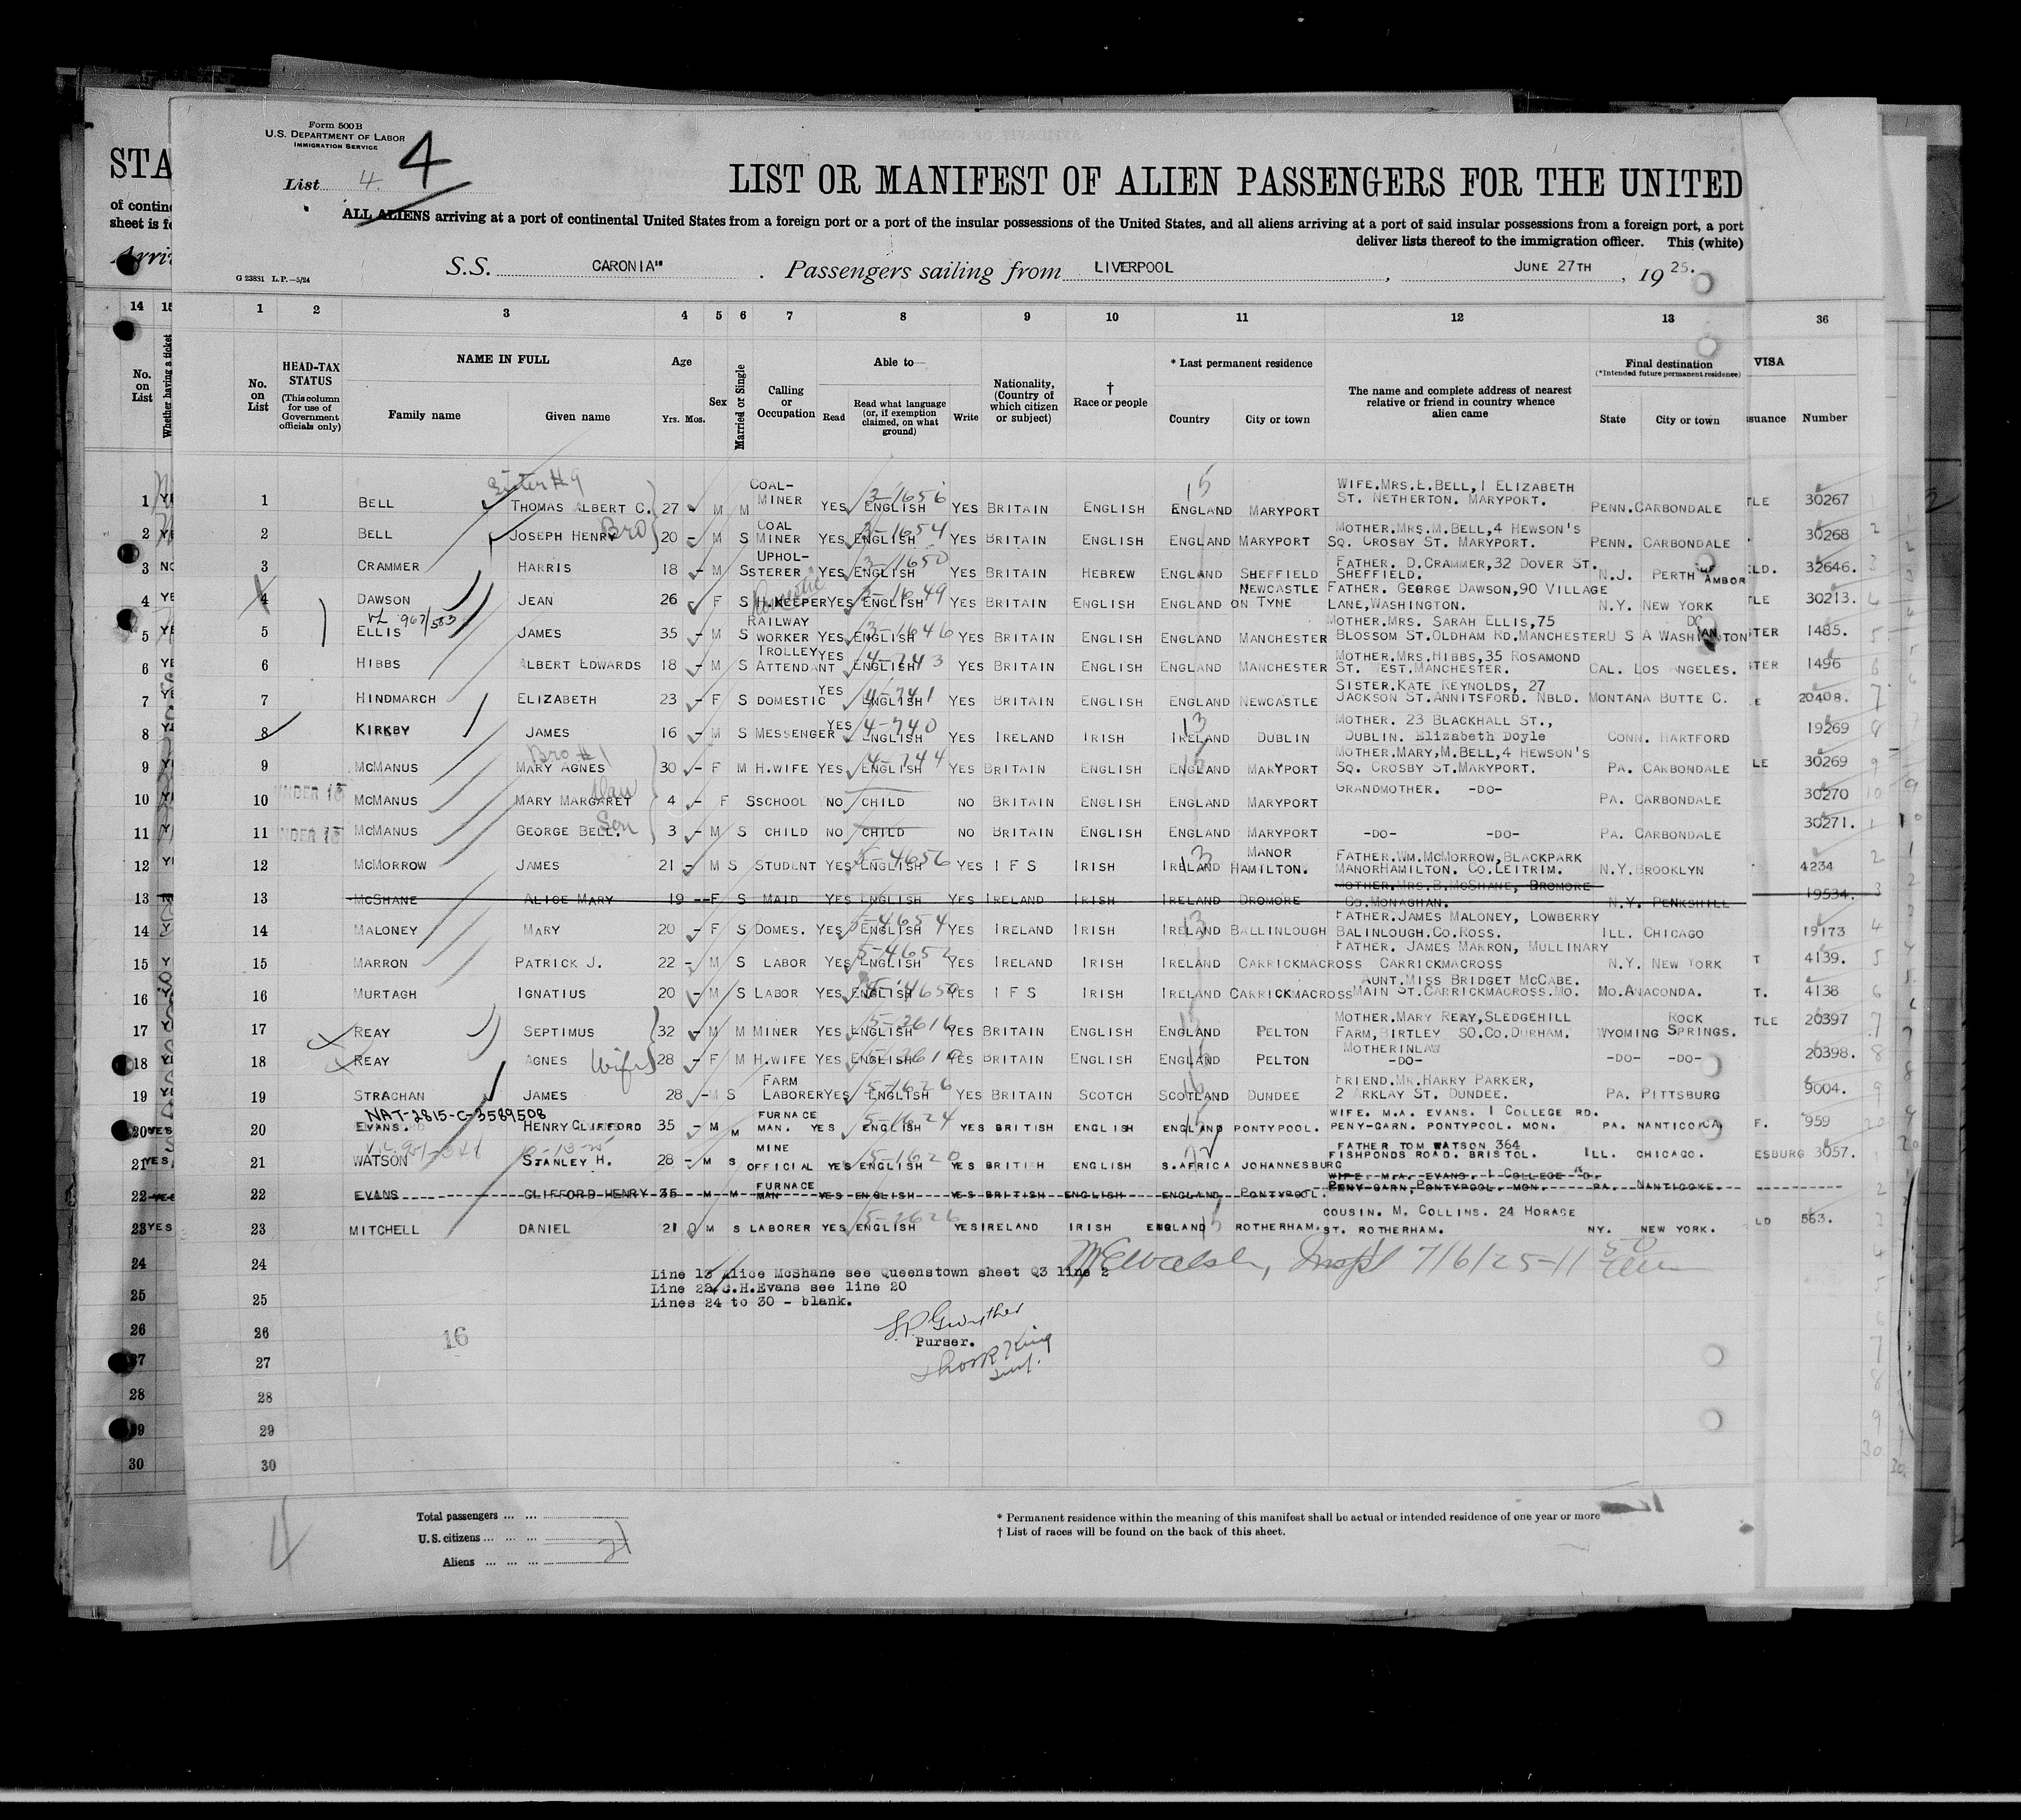 Form 500 B
U.S. DEPARTMENT OF LABOR
IMMIGRATION SERVICE
4
List 4.
STA
LIST OR MANIFEST OF ALIEN PASSENGERS FOR THE UNITED
of contin
sheet is f
ALL ALIENS arriving at a port of continental United States from a foreign port or a port of the insular possessions of the United States, and all aliens arriving at a port of said insular possessions from a foreign port, a port
deliver lists thereof to the immigration officer. This (white)
Arri
G 23831 L.P.—5/24
S.S. CARONIA" . Passengers sailing from LIVERPOOL , JUNE 27TH , 19 25.
14 15 1 2 3 4 5 6 7 8 9 10 11 12 13 36
No. on List Whether having a ticket No. on List HEAD-TAX STATUS (This column for use of Government officials only) NAME IN FULL Family name Given name Age Yrs. Mos. Sex Married or Single Calling or Occupation Able to— Read Read what language (or, if exemption claimed, on what ground) Write Nationality, (Country of which citizen or subject) † Race or people * Last permanent residence Country City or town The name and complete address of nearest relative or friend in country whence alien came Final destination (*Intended future permanent residence) State City or town VISA ssuance Number
Sister #9
1 1 BELL THOMAS ALBERT C. 27 - M M COAL-MINER YES 3-1656 ENGLISH YES BRITAIN ENGLISH 15 ENGLAND MARYPORT WIFE.MRS.E.BELL,1 ELIZABETH ST. NETHERTON. MARYPORT. PENN.CARBONDALE TLE 30267
2 2 BELL JOSEPH HENRY Bro 20 - M S COAL MINER YES 3-1654 ENGLISH YES BRITAIN ENGLISH ENGLAND MARYPORT MOTHER.MRS.M.BELL,4 HEWSON'S SQ. CROSBY ST. MARYPORT. PENN. CARBONDALE 30268
3 NO 3 CRAMMER HARRIS 18 - M S UPHOL-STERER YES 3-1650 ENGLISH YES BRITAIN HEBREW ENGLAND SHEFFIELD FATHER. D.CRAMMER,32 DOVER ST. SHEFFIELD. N.J. PERTH AMBOR ELD. 32646.
4 YE 4 DAWSON JEAN 26 F S H.KEEPER Domestic YES 3-1649 ENGLISH YES BRITAIN ENGLISH ENGLAND NEWCASTLE ON TYNE FATHER. GEORGE DAWSON,90 VILLAGE LANE,WASHINGTON. N.Y. NEW YORK TLE 30213.
5 YE 5 ELLIS JAMES 35 - M S RAILWAY WORKER YES 3-1646 ENGLISH YES BRITAIN ENGLISH ENGLAND MANCHESTER MOTHER.MRS. SARAH ELLIS,75 BLOSSOM ST.OLDHAM RD.MANCHESTER U S A WASHINGTON DC STER 1485.
6 YE 6 HIBBS ALBERT EDWARDS 18 - M S TROLLEY ATTENDANT YES 4-743 ENGLISH YES BRITAIN ENGLISH ENGLAND MANCHESTER MOTHER.MRS.HIBBS,35 ROSAMOND ST. WEST.MANCHESTER. CAL. LOS ANGELES. STER 1496
7 7 HINDMARCH ELIZABETH 23 - F S DOMESTIC YES 4-741 ENGLISH YES BRITAIN ENGLISH ENGLAND NEWCASTLE SISTER.KATE REYNOLDS, 27 JACKSON ST.ANNITSFORD. NBLD. MONTANA BUTTE C. E 20408.
8 8 KIRKBY JAMES 16 - M S MESSENGER YES 4-740 ENGLISH YES IRELAND IRISH 13 IRELAND DUBLIN MOTHER. 23 BLACKHALL ST., DUBLIN. Elizabeth Doyle CONN. HARTFORD 19269
9 9 MCMANUS MARY AGNES Bro #1 30 - F M H.WIFE YES 4-744 ENGLISH YES BRITAIN ENGLISH 15 ENGLAND MARYPORT MOTHER.MARY,M.BELL,4 HEWSON'S SQ. CROSBY ST.MARYPORT. PA. CARBONDALE LE 30269
10 10 UNDER 16 MCMANUS MARY MARGARET 4 - F S SCHOOL NO CHILD NO BRITAIN ENGLISH ENGLAND MARYPORT GRANDMOTHER. -DO- PA. CARBONDALE 30270
11 11 UNDER 16 MCMANUS GEORGE BELL. Son 3 - M S CHILD NO CHILD NO BRITAIN ENGLISH ENGLAND MARYPORT -DO- -DO- PA. CARBONDALE 30271.
12 12 MCMORROW JAMES 21 - M S STUDENT YES 5-4656 ENGLISH YES I F S IRISH 13 IRELAND MANOR HAMILTON. FATHER.WM.MCMORROW,BLACKPARK MANORHAMILTON. CO.LEITRIM. N.Y.BROOKLYN 4234
13 13 MCSHANE ALICE MARY 19 - F S MAID YES ENGLISH YES IRELAND IRISH IRELAND DROMORE MOTHER.MRS.B.MCSHANE, BROMORE CO.MONAGHAN. N.Y. PENKSHILL 19534.
14 14 MALONEY MARY 20 - F S DOMES. YES 5-4654 ENGLISH YES IRELAND IRISH 13 IRELAND BALLINLOUGH FATHER.JAMES MALONEY, LOWBERRY BALINLOUGH.CO.ROSS. ILL. CHICAGO 19173
15 15 MARRON PATRICK J. 22 - M S LABOR YES 5-4652 ENGLISH YES IRELAND IRISH IRELAND CARRICKMACROSS FATHER. JAMES MARRON, MULLINARY CARRICKMACROSS N.Y. NEW YORK T 4139.
16 16 MURTAGH IGNATIUS 20 - M S LABOR YES 4650 ENGLISH YES I F S IRISH IRELAND CARRICKMACROSS AUNT.MISS BRIDGET MCCABE. MAIN ST.CARRICKMACROSS.MO. MO.ANACONDA. T. 4138
17 17 REAY SEPTIMUS 32 - M M MINER YES 5-2616 ENGLISH YES BRITAIN ENGLISH ENGLAND PELTON MOTHER.MARY REAY,SLEDGEHILL FARM,BIRTLEY SO.CO.DURHAM. WYOMING ROCK SPRINGS. TLE 20397
18 18 REAY AGNES Wife 28 - F M H.WIFE YES ENGLISH YES BRITAIN ENGLISH ENGLAND PELTON MOTHERINLAW -DO- -DO- -DO- 20398.
19 19 STRACHAN JAMES 28 - M S FARM LABORER YES 5-1626 ENGLISH YES BRITAIN SCOTCH SCOTLAND DUNDEE FRIEND.MR.HARRY PARKER, 2 ARKLAY ST. DUNDEE. PA. PITTSBURG 9004.
NAT-2815-C-3589508
20 YES 20 EVANS. HENRY CLIFFORD 35 - M M FURNACE MAN. YES 5-1624 ENGLISH YES BRITISH ENGLISH 15 ENGLAND PONTYPOOL. WIFE. M.A. EVANS. 1 COLLEGE RD. PENY-GARN. PONTYPOOL. MON. PA. NANTICO F. 959
21 YES 21 WATSON STANLEY H. 28 - M S MINE OFFICIAL YES 5-1620 ENGLISH YES BRITISH ENGLISH S.AFRICA JOHANNESBURG FATHER TOM WATSON 364 FISHPONDS ROAD. BRISTOL. ILL. CHICAGO. ESBURG 3057.
22 YES 22 EVANS CLIFFORD HENRY 35 M M FURNACE MAN YES ENGLISH YES BRITISH ENGLISH ENGLAND PONTYPOOL. WIFE M.A. EVANS. 1 COLLEGE D. PENY GARN, PONTYPOOL. MON. PA. NANTICOKE.
23 YES 23 MITCHELL DANIEL 21 M S LABORER YES 5-2626 ENGLISH YES IRELAND IRISH ENGLAND 15 ROTHERHAM. COUSIN. M. COLLINS. 24 HORACE ST. ROTHERHAM. NY. NEW YORK. LD 563.
24 24
Line 13 Alice McShane see Queenstown sheet Q3 line 2
Line 22 C.H.Evans see line 20
25 25 Lines 24 to 30 - blank.
7/6/25-11 50
26 26 16
Purser.
27 27
28 28
29 29
30 30
4
Total passengers ... ...
U.S. citizens ... ... ...
Aliens ... ... ... 21
* Permanent residence within the meaning of this manifest shall be actual or intended residence of one year or more
† List of races will be found on the back of this sheet.